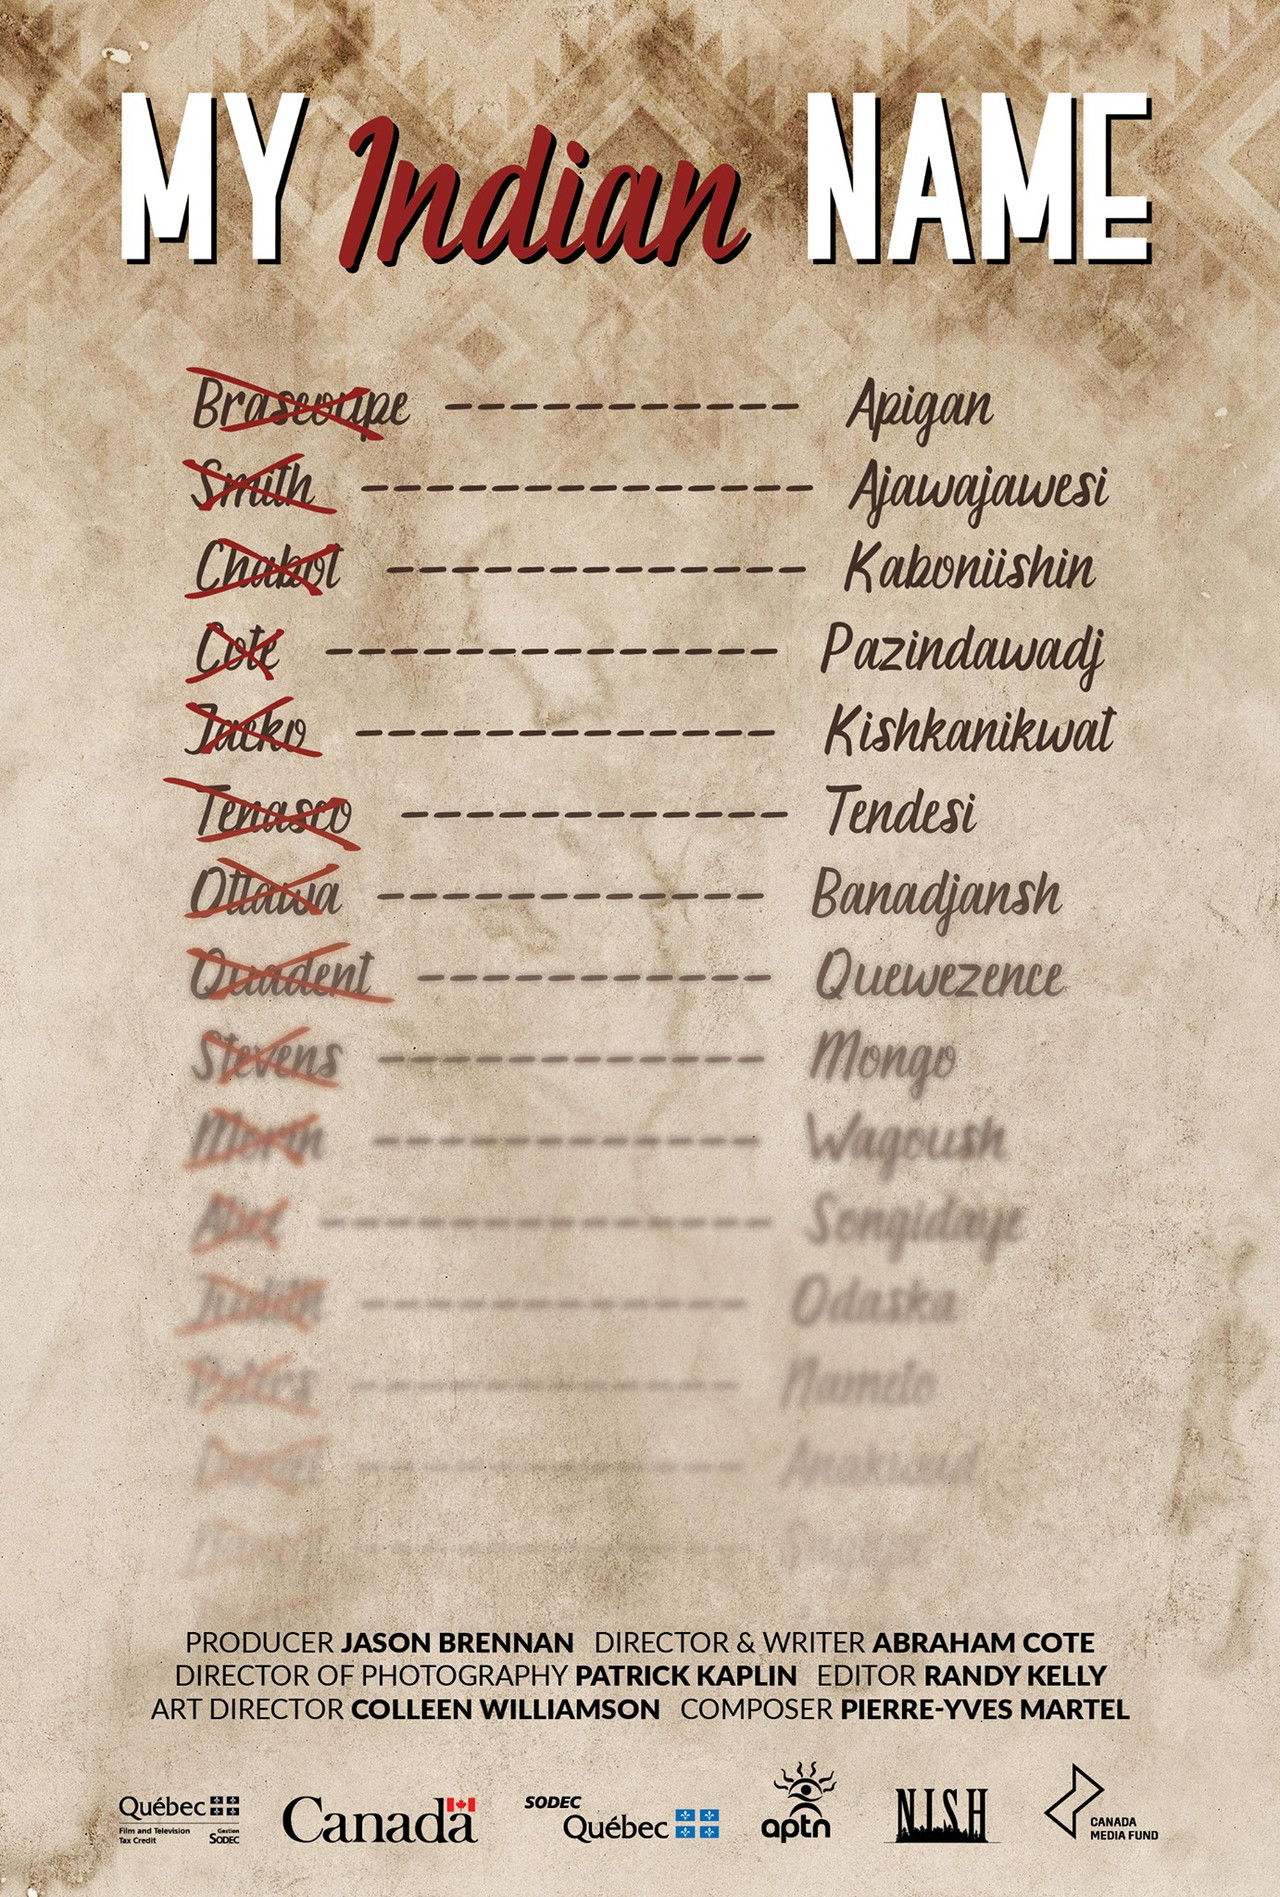 MY Indian NAME
Brascoupe ------------ Apigan
Smith -------------- Ajawajawesi
Chabot ------------- Kaboniishin
Cote -------------- Pazindawadj
Jacko ------------- Kishkanikwat
Tenasco ------------ Tendesi
Ottawa ------------ Banadjansh
Quadent ----------- Quewezence
Stevens ------------ Mongo
Morin ------------ Wagoush
-------------- Songidaye
------------ Odaska
------------
------------ Anakwad
PRODUCER JASON BRENNAN DIRECTOR & WRITER ABRAHAM COTE
DIRECTOR OF PHOTOGRAPHY PATRICK KAPLIN EDITOR RANDY KELLY
ART DIRECTOR COLLEEN WILLIAMSON COMPOSER PIERRE-YVES MARTEL
Québec
Film and Television
Tax Credit
Gestion
SODEC
Canada
SODEC
Québec
aptn
NISH
CANADA
MEDIA FUND